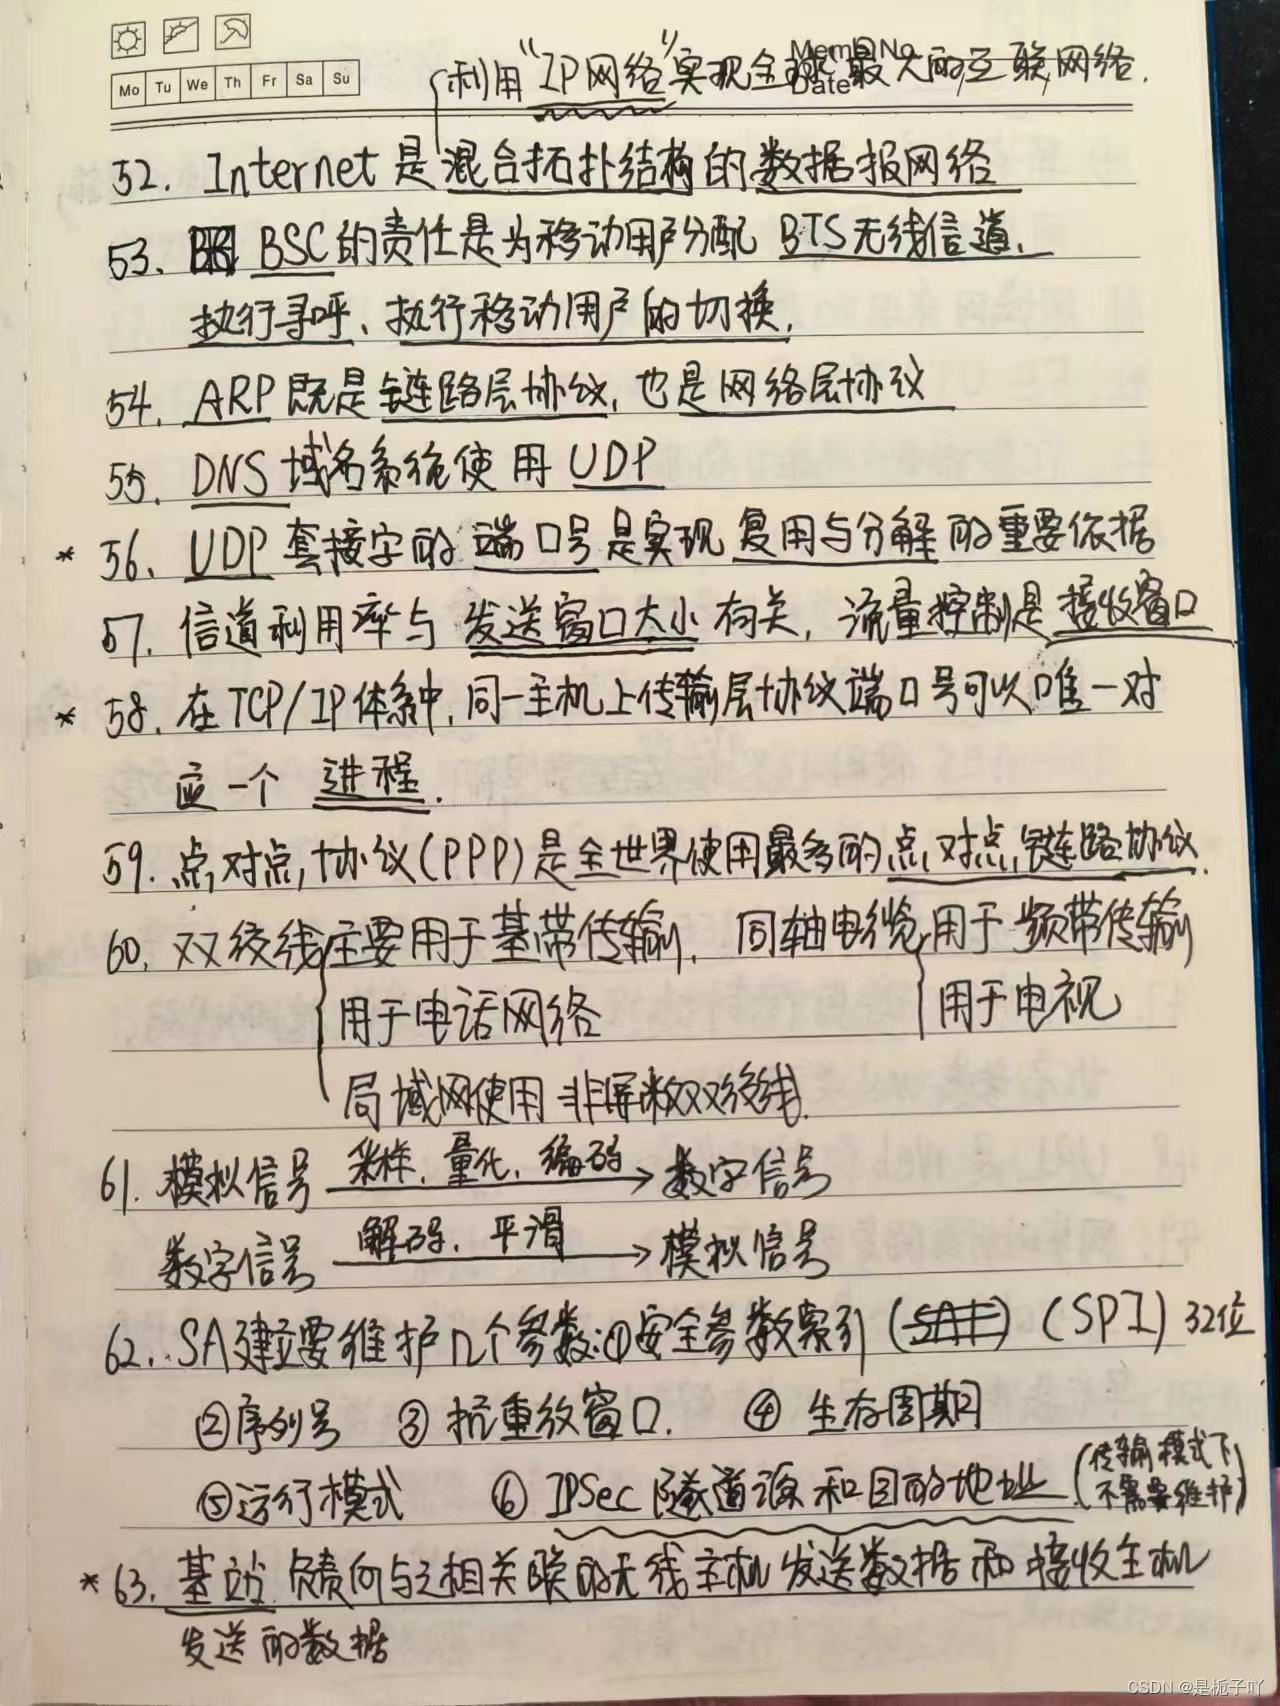 Mo Tu We Th Fr Sa Su
Memo No.
Date
利用"IP网络"实现全球最大的互联网络.
52. Internet 是混合拓扑结构的数据报网络
53. BSC的责任是为移动用户分配 BTS无线信道、
执行寻呼、执行移动用户的切换.
54. ARP 既是链路层协议, 也是网络层协议
55. DNS 域名系统使用 UDP
* 56. UDP 套接字的端口号是实现 复用与分解的重要依据
57. 信道利用率与 发送窗口大小 有关, 流量控制是 接收窗口
* 58. 在TCP/IP体系中, 同一主机上传输层协议端口号可以唯一对
应一个 进程.
59. 点对点协议(PPP)是全世界使用最多的点对点链路协议.
60. 双绞线 主要用于基带传输. 同轴电缆 用于频带传输
用于电话网络 用于电视
局域网使用 非屏蔽双绞线.
61. 模拟信号 采样、量化、编码 → 数字信号
数字信号 解码、平滑 → 模拟信号
62. SA建立要维护几个参数:①安全参数索引 (SPI) 32位
②序列号 ③ 抗重放窗口. ④ 生存周期
⑤运行模式 ⑥ IPSec隧道源和目的地址 (传输模式下
不需要维护)
* 63. 基站 负责向与之相关联的无线主机发送数据和接收主机
发送的数据
CSDN @是栀子吖